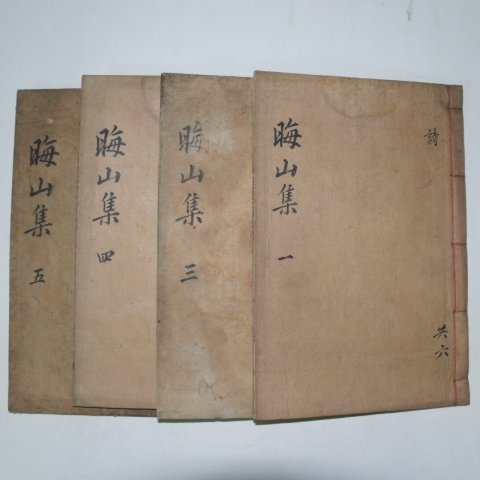 詩
晦山集 一
共六
晦山集 三
晦山集 四
晦山集 五